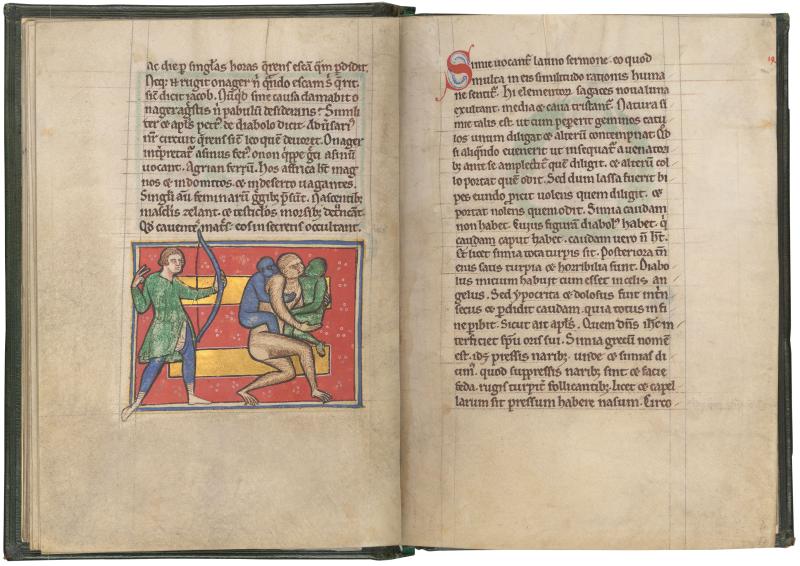 Ac die p singlas horas qrens escā qm pdidit.
Neq; & rugit onager n̄ qn̄do escam s̄ q̄rit.
sic̄ dicit jacob. Nūqd sine causa clamabit o
nager agr̄stis n̄ pabulū desiderans? Simili
ter ⁊ apl̄s petr̄ de diabolo dicit. Adūsari
nr̄ circuit qrens sic̄ leo quē deuoret. Onager
int̄pretat̄ asinus fer̄. onon q̄ppe gc̄i asinū
uocant. Agrian ferrū. Hos affrica h̄t mag
nos ⁊ indomitos. ⁊ in deserto uagantes.
Singli aū feminarū ḡgib; p̄sunt. Nascentib;
masclis zelant. ⁊ testiclos morsib; det̄ncant.
Qd̄ cauentes mat̄s eos in secretis occultant.
Simie uocant̄ latino sermone. eo quod
simulta in eis similitudo rationis huma
ne sentit̄. Hi elementor̄ sagaces noua luna
exultant. media ⁊ caua tristant̄. Natura si
mie talis est. ut cum peperit geminos catu
los unum diligat ⁊ alterū contempnat. Qd̄
si aliqn̄do euenerit ut insequat̄ a uenatori
b; ante se amplectit̄ quē diligit. ⁊ alterū col
lo portat quē odit. Sed dum lassa fuerit bi
pes eundo ꝓicit uolens quem diligit. ⁊
portat nolens quem odit. Simia caudam
non habet. Cuius figuram diabol̄ habet. q̄
caudam caput habet. caudam uero n̄ h̄t.
Et licet simia tota turpis sit. Posteriora tm̄
eius satis turpia ⁊ horribilia sunt. Diabo
lus initium habuit cum esset in celis an
gelus. Sed ypocrita ⁊ dolosus fuit int̄n
secus ⁊ perdidit caudam. quia totus in fi
ne peribit. Sicut ait apl̄s. Quem dn̄s ihc̄ in
terficiet sp̄u oris sui. Simia grecū nomē
est. id ē pressis narib;. unde ⁊ simias di
cim̄. quod suppressis narib; sint ⁊ facie
feda. rugis turpit̄ follicantib;. licet ⁊ capel
larum sit pressum habere nasum. Circo